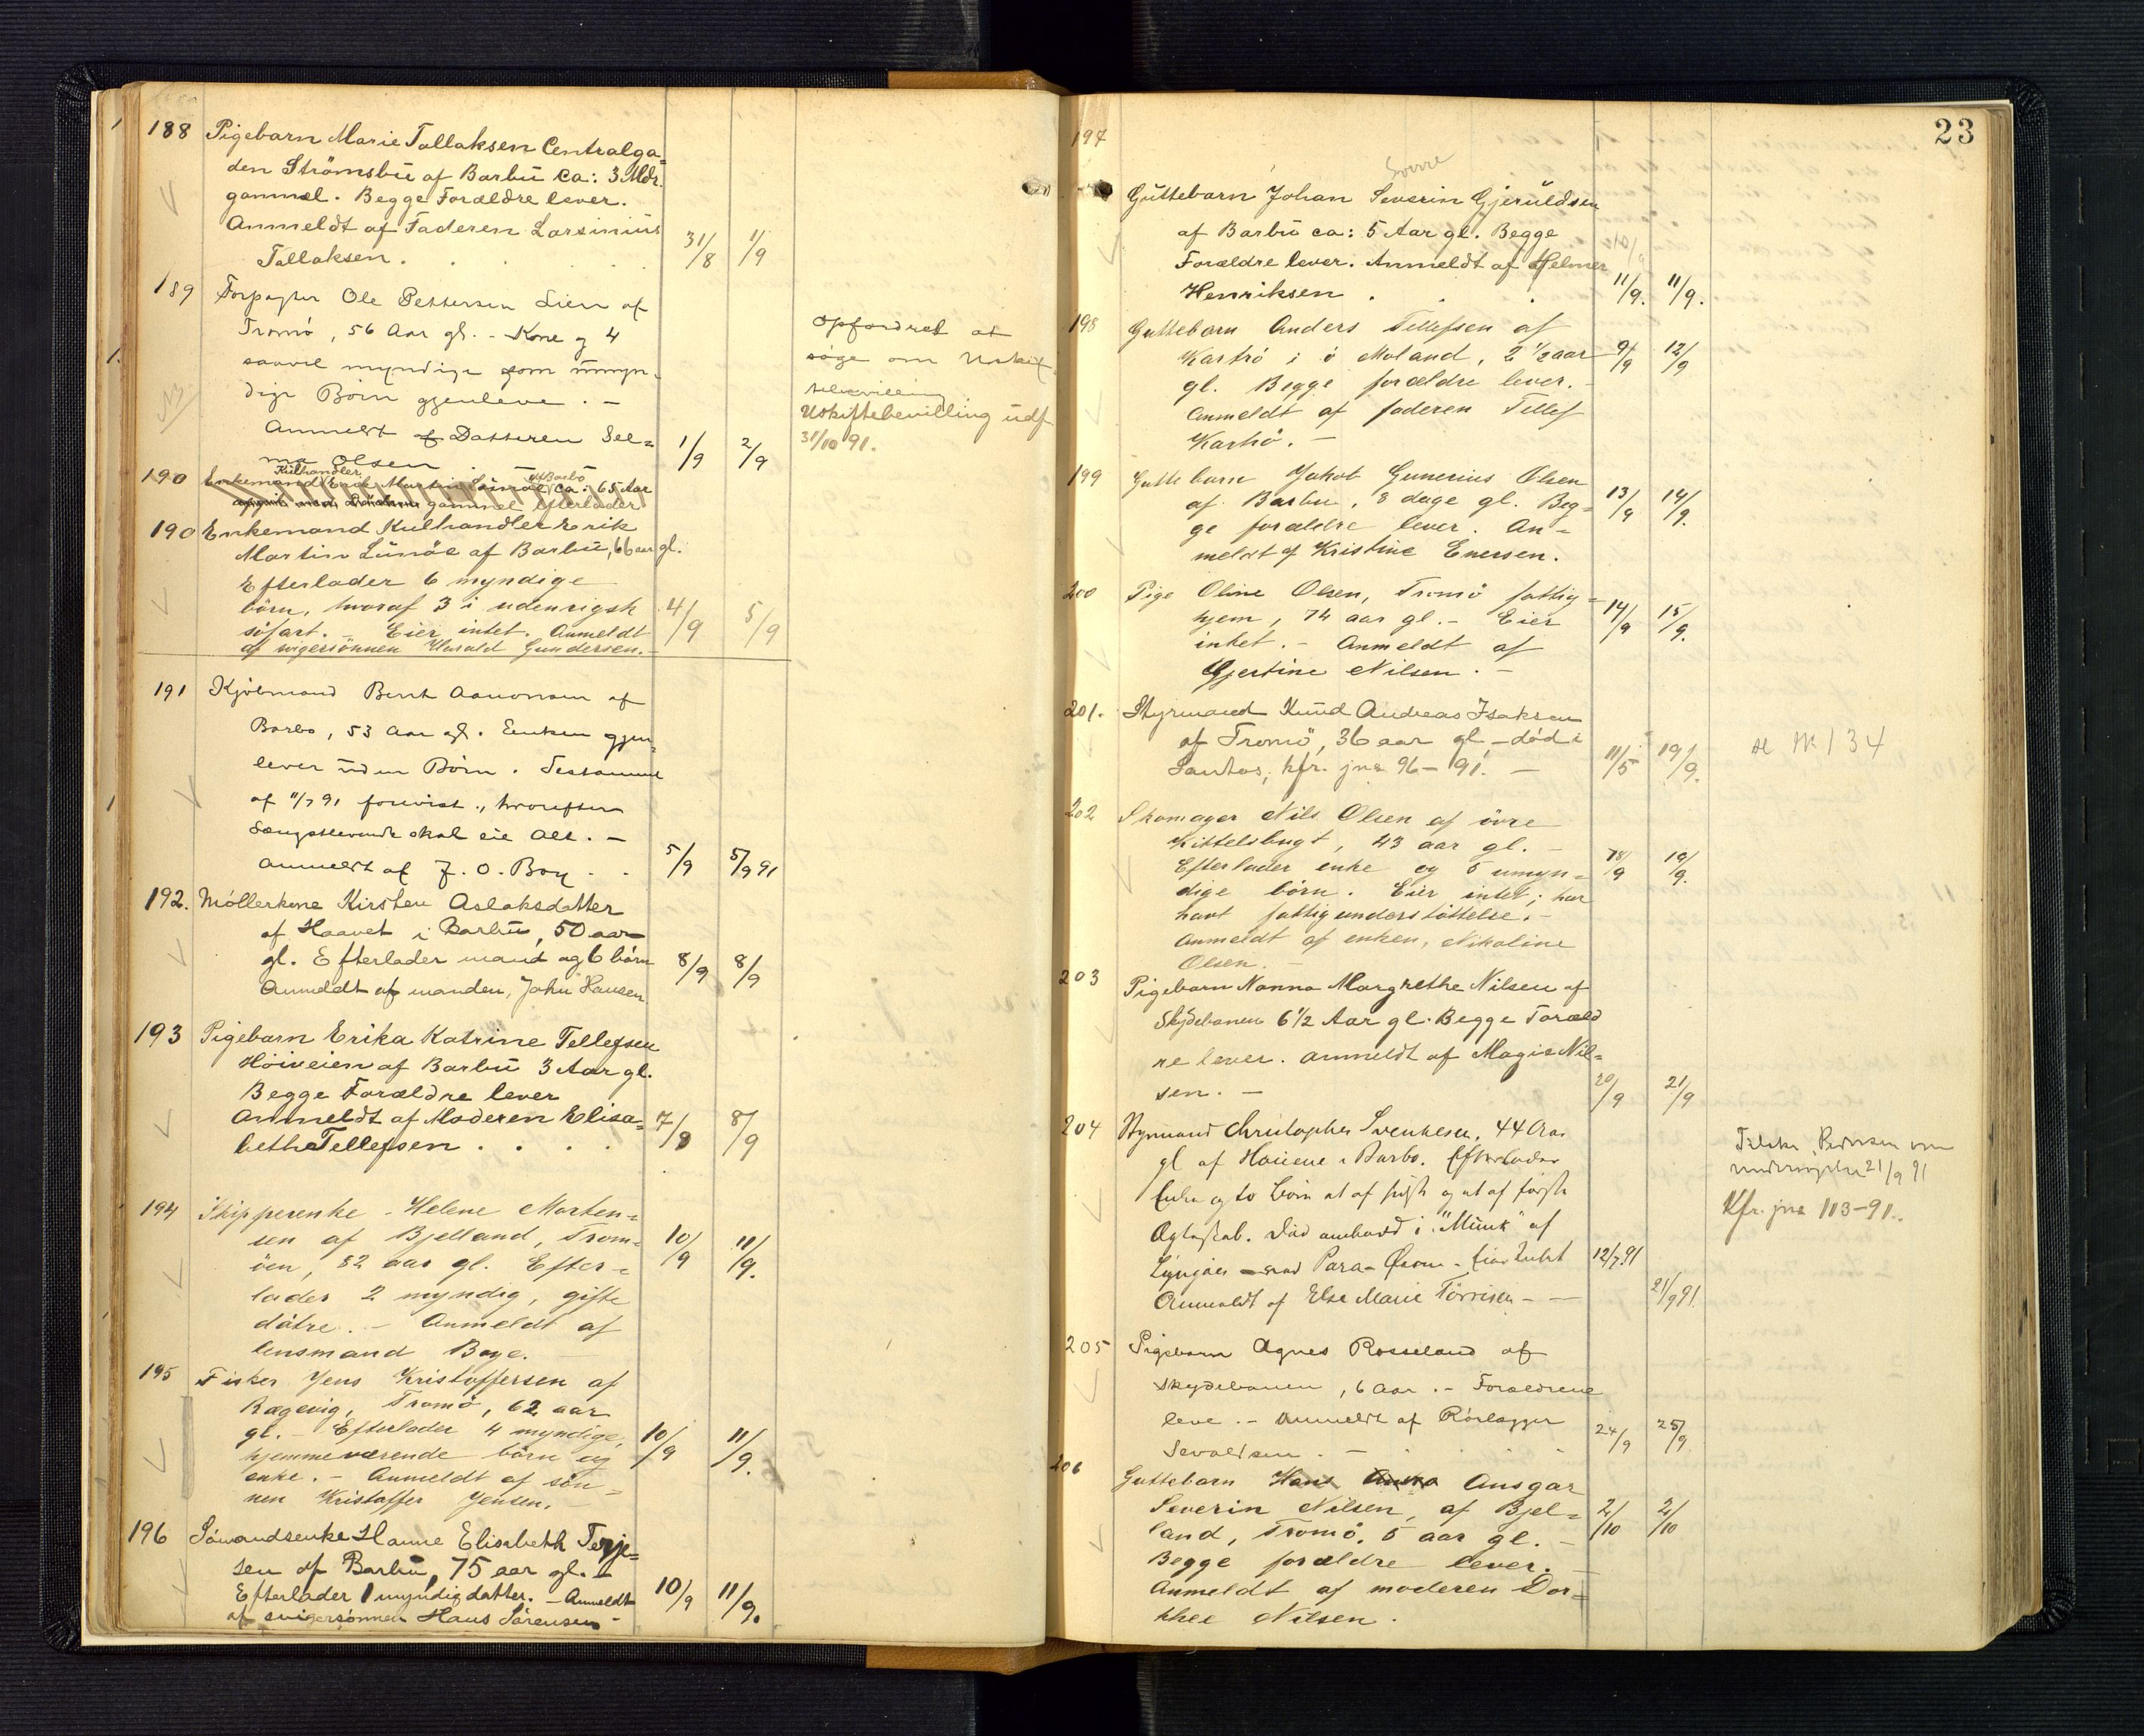 188 Pigebarn Marie Tallaksen Centralga=
den Strömsbū af Barbū ca: 3 Mdr.
gammel. Begge Forældre lever.
Anmeldt af Faderen Larsinius
Tallaksen . 31/8 1/9
189 Forpagter Ole Pettersen Lien af
Tromö, 56 Aar gl. - Kone og 4
saavel myndige som ūmyn-
dige Börn gjenleve. -
Anmeldt af Datteren Sel=
ma Olsen 1/9 2/9
Opfordret at
søge om Uskif-
tebevilling
Uskiftebevilling ūdf
31/10 91.
190 Enkemand Kulhandler Erik Martin af Barbö ca: 65 Aar
gammel efterlader
190 Enkemand Kulhandler Erik
Martin Lūnöe af Barbū, 66 aar gl.
Efterlader 6 myndige
börn, hvoraf 3 i udenrigsk
söfart. - Eier intet. Anmeldt
af svigersönnen Harald Gundersen. - 4/9 5/9
191 Kjöbmand Bent Aanonsen af
Barbo, 53 Aar gl. Enken gjen-
lever ūden Börn. Testament
af 11/7 91 forevist, hvorefter
Længstlevende skal eie Alt. -
Anmeldt af J. O. Boy . . 5/9 5/9 91
192. Möllerkone Kirsten Aslaksdatter
af Haavet i Barbū, 50 aar
gl. Efterlader mand og 6 börn
Anmeldt af manden, John Hansen. 8/9 8/9
193 Pigebarn Erika Katrine Tellefsen
Höiveien af Barbū 3 Aar gl.
Begge Forældre lever
Anmeldt af Moderen Elisa=
bethe Tellefsen . . . . 7/8 8/9
194 Skipperenke - Helene Morten=
sen af Bjelland, Trom=
öen, 82 aar gl. Efter=
lader 2 myndig, gifte
dötre. - Anmeldt af
lensmand Boye. 10/9 11/9.
195 Fisker Jens Kristoffersen af
Rægevig, Tromö, 62 aar
gl. - Efterlader 4 myndige,
hjemmeværende börn og
enke. - Anmeldt af sön=
nen Kristoffer Jensen. 10/9 11/9.
196 Sömandsenke Hanne Elisabeth Terje=
sen af Barbū, 75 aar gl. -
Efterlader 1 myndig datter. - Anmeldt
af svigersönnen Hans Sörensen - 10/9 11/9.
23
197
Gūttebarn Johan Severin Gjerūldsen
af Barbū ca: 5 Aar gl. Begge
Forældre lever. Anmeldt af Helmer
Henriksen . . . 11/9. 11/9.
198 Guttebarn Anders Tellefsen af
Kaströ i ö Moland, 2 1/2 aar
gl. Begge forældre lever. -
Anmeldt af faderen Tellef
Kaströ. - 9/9 12/9
199 Guttebarn Jakob Gunerius Olsen
af Barbu, 8 dage gl. Beg=
ge forældre lever. An=
meldt af Kristine Enersen. 13/9 14/9.
200 Pige Oline Olsen, Tromö fattig=
hjem, 74 aar gl. - Eier
intet. - Anmeldt af
Gjertine Nilsen . - 14/9 15/9.
201. Styrmand Knūd Andreas Isaksen
af Tromö, 36 aar gl, - död i
Santos, kfr. jnr 96 - 91. - 11/5 19/9.
202 Skomager Nils Olsen af övre
Kittelsbugt, 43 aar gl. -
Efterlader enke og 5 umyn=
dige börn. Eier intet; har
havt fattigunderstöttelse. -
Anmeldt af enken, Nikoline
Olsen. - 18/9 19/9.
203 Pigebarn Nanna Margrethe Nilsen af
Skydebanen 6 1/2 Aar gl. Begge Foræld
re lever. Anmeldt af Magie Nil=
sen. - 20/9 21/9
204 Styrmand Christopher Svenksen, 44 Aar
gl af i Barbo. Efterlader
Enke og to Börn et af sidste og et af første
Ægteskab. Död ombord i "Munk" af
Lyngör Para - Eier Intet
Anmeldt af Else Marie Törrisen - - 12/7 91 21/9 91.
Pedersen om
21/9 91
Kfr. jnr 113-91.
205 Pigebarn Agnes Rosseland af
Skydebanen, 6 Aar. - Forældrene
leve. - Anmeldt af Rörlægger
Sevaldsen . - 24/9 25/9
206 Guttebarn Hans Ansgar
Severin Nilsen, af Bjel=
land, Tromö, 5 aar gl. -
Begge forældre lever. -
Anmeldt af moderen Dor=
thee Nilsen. 2/10 2/10